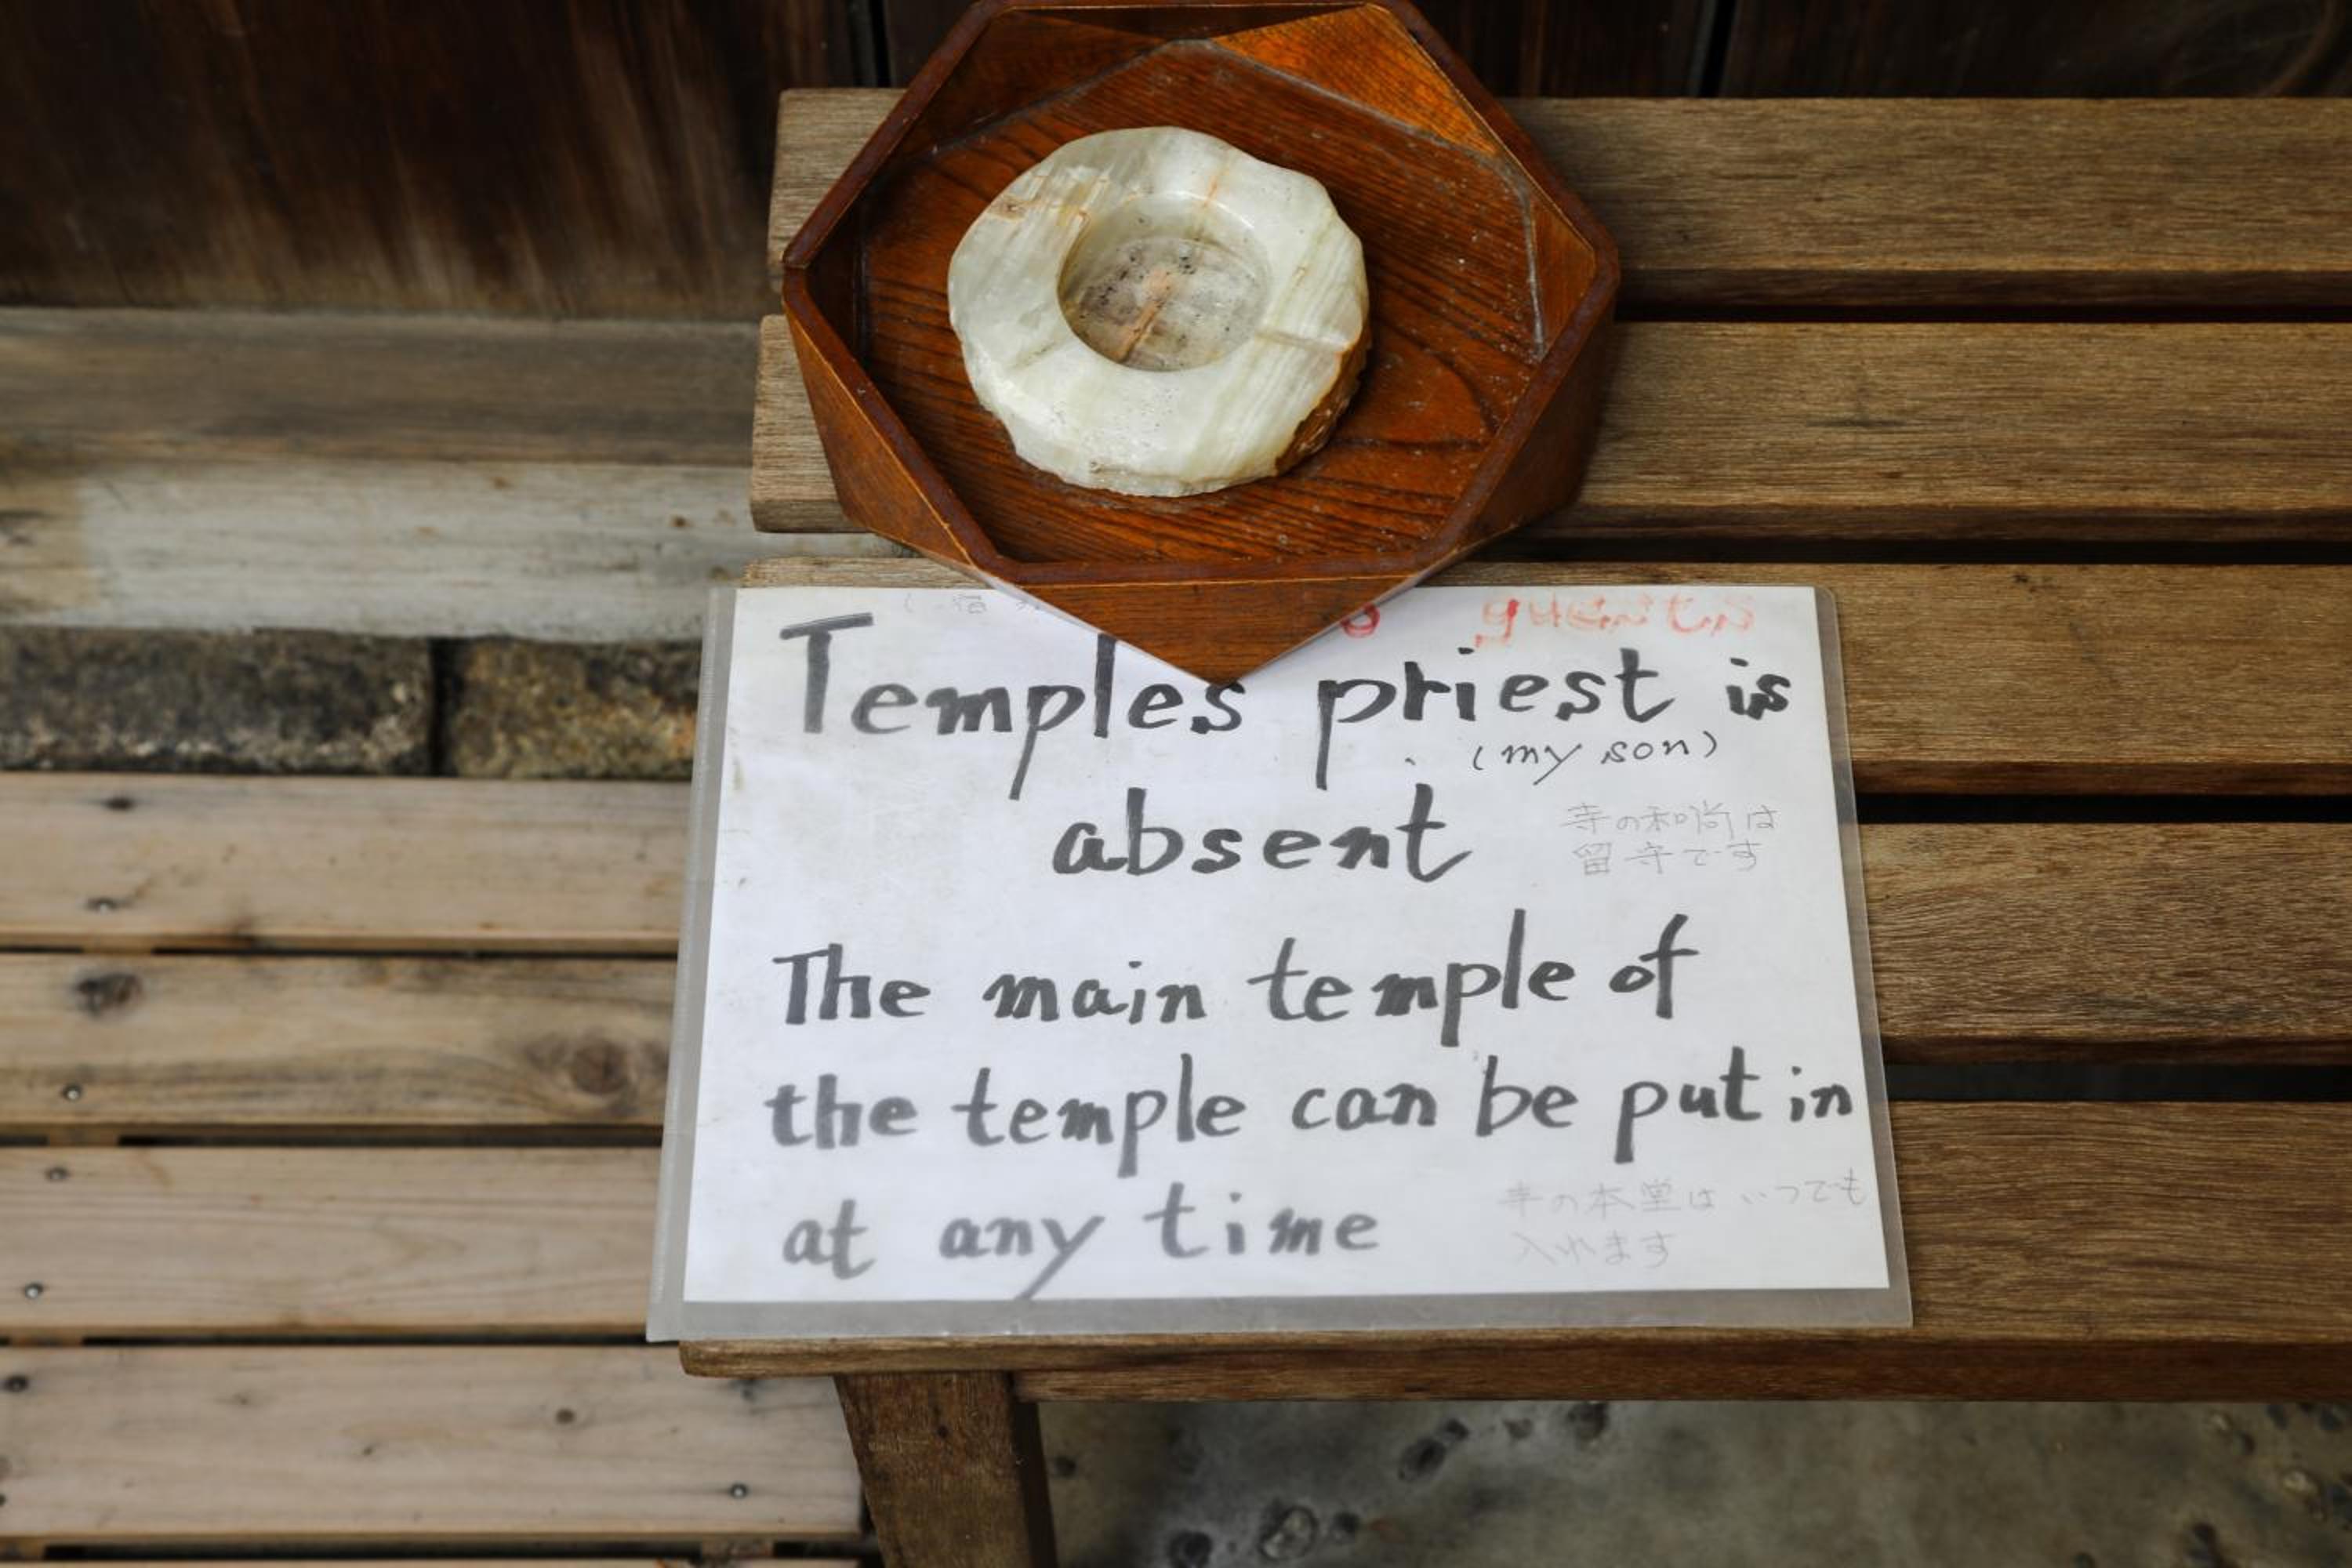 guests
Temples priest is
(my son)
absent
寺の和尚は
留守です
The main temple of
the temple can be put in
at any time
寺の本堂はいつでも
入れます